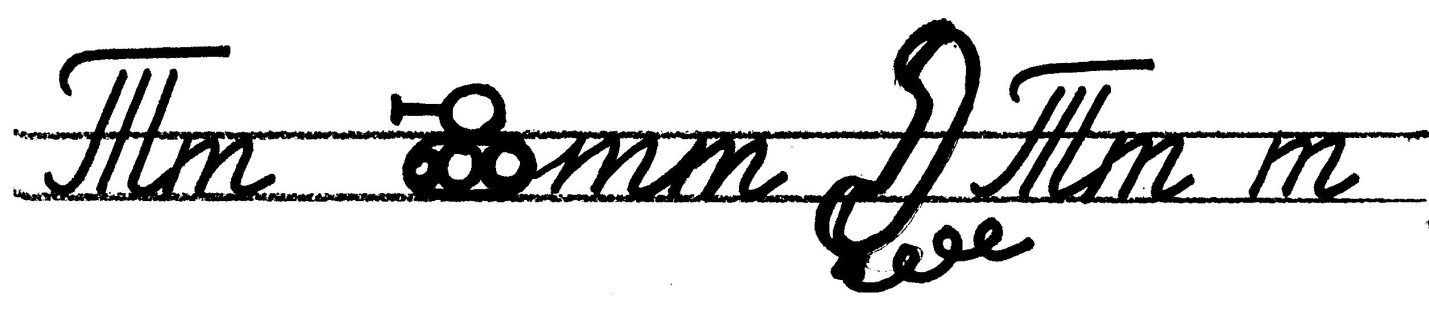 Тт тт Тт т